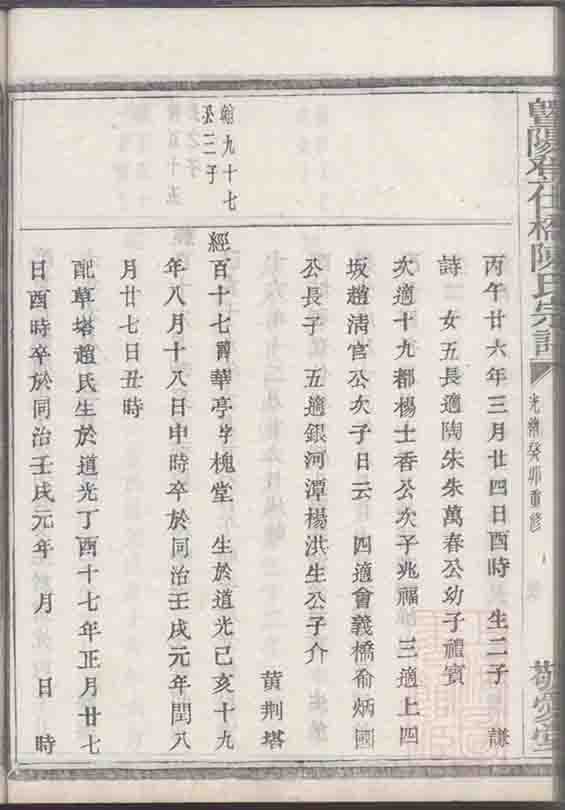 暨陽宅仕橋陳氏宗譜
光緒癸卯重修
敬愛堂
丙午廿六年三月廿四日酉時 生二子 謙
詩 女五長適陶朱朱萬春公幼子禮賓
次適十九都楊士香公次子兆福 三適上四
坂趙清官公次子日云 四適會義橋俞炳國
公長子 五適銀河潭楊洪生公子介
黄荆塔
翰九十七
公三子
經百十七 諱華亭字槐堂 生於道光己亥十九
年八月十八日申時卒於同治壬戌元年閏八
月廿七日丑時
配草塔趙氏生於道光丁酉十七年正月廿七
日酉時卒於同治壬戌元年 月 日 時